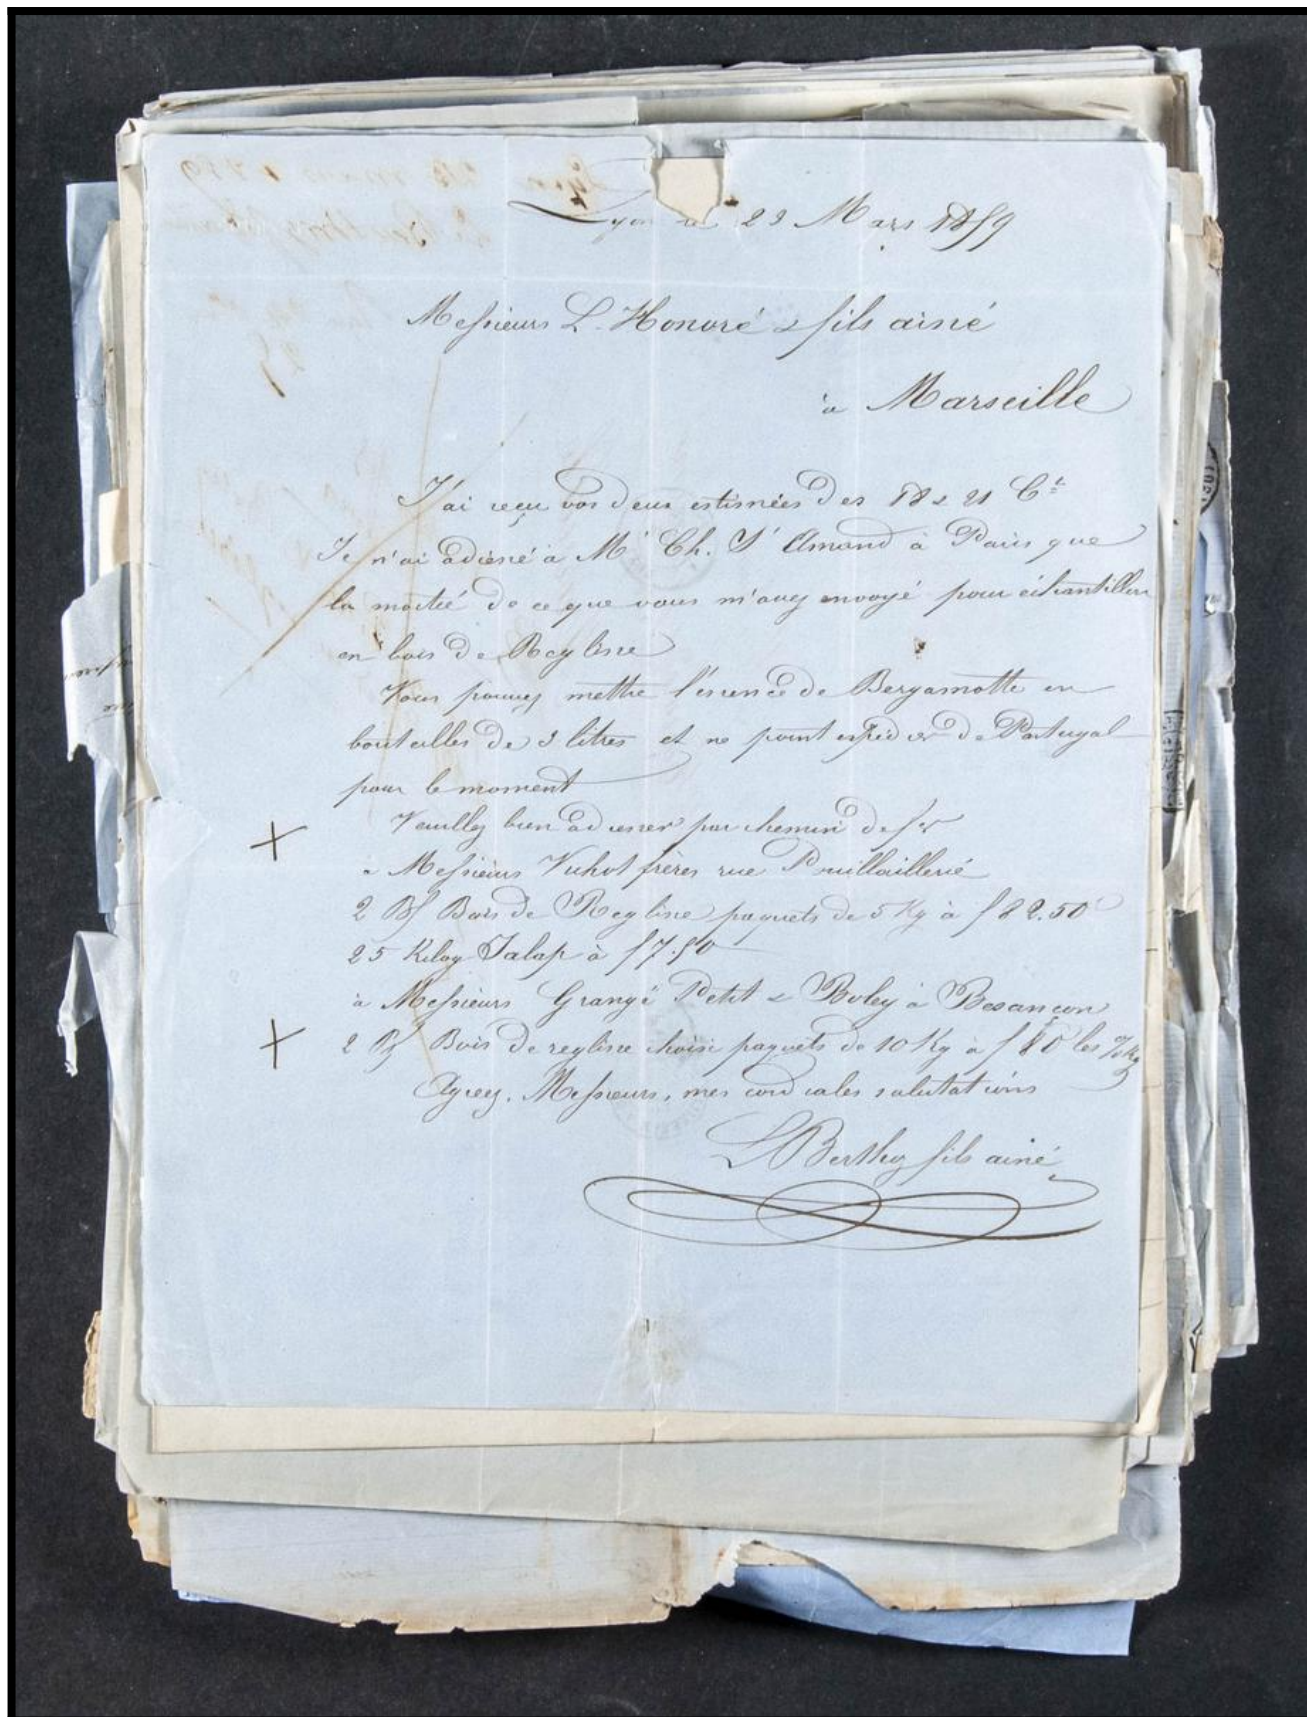 Lyon le 23 Mars 1859
Messieurs L. Honoré & fils ainé
à Marseille
J'ai reçu vos deux estimées des 18 & 21 Ct
Je n'ai adressé à Mr Ch. St Amand à Paris que
la moitié de ce que vous m'avez envoyé pour échantillon
en bois de Reglisse
Vous pouvez mettre l'essence de Bergamotte en
bouteilles de 3 litres et ne point expédier de Portugal
pour le moment
Veuillez bien adresser par chemin de fer
à Messieurs frères rue
2 Bs Bois de Reglisse paquets de 5 Kg à f 82.50
25 Kilog Jalap à f 7.50
à Messieurs Grangé Petit & Boley à Besançon
2 Bs Bois de reglisse choisi paquets de 10 Kg à f 80 les % Kg
Agréez, Messieurs, mes cordiales salutations
L Berthoz fils ainé